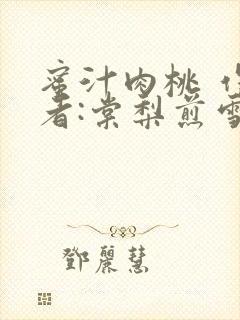 蜜汁肉桃 作
者:棠梨煎雪
鄧麗慧